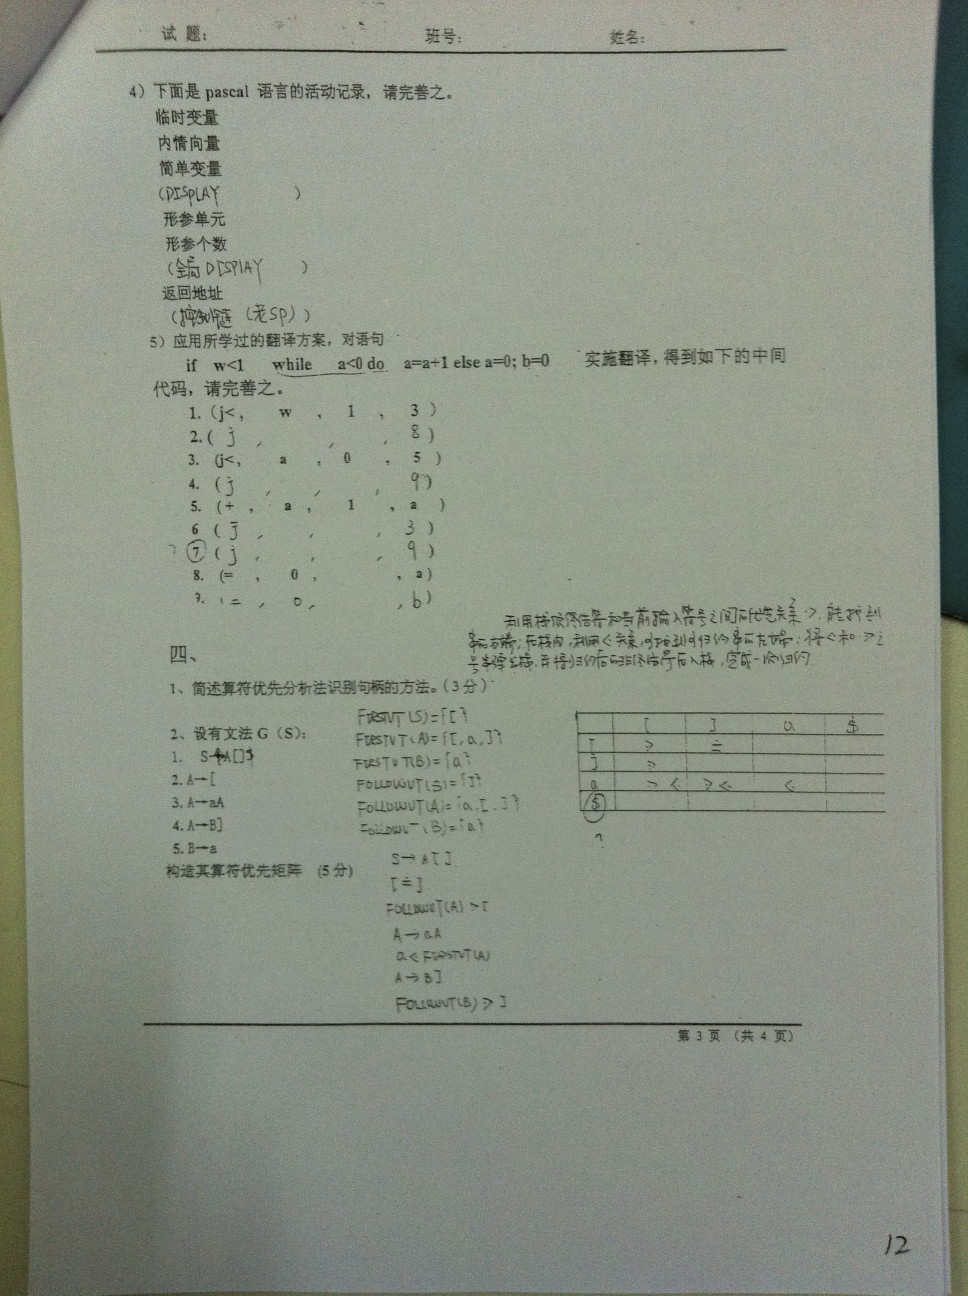 试 题:
班号:
姓名:
4) 下面是 pascal 语言的活动记录, 请完善之。
临时变量
内情向量
简单变量
(DISPLAY )
形参单元
形参个数
(全局 DISPLAY )
返回地址
(控制链 (老SP) )
5) 应用所学过的翻译方案, 对语句
if w<1 while a<0 do a=a+1 else a=0; b=0 实施翻译, 得到如下的中间
代码, 请完善之。
1. (j<, w , 1 , 3 )
2. ( j , , , 8 )
3. (j<, a , 0 , 5 )
4. ( j , , , 9 )
5. (+ , a , 1 , a )
6 ( j , , , 3 )
? ⑦ ( j , , , 9 )
8. (= , 0 , , a )
9. ( = , 0, , b )
利用栈顶终结符和当前输入符号之间的优先关系 >, 能找到
四、
1、简述算符优先分析法识别句柄的方法。(3 分)
2、设有文法 G (S):
1. S→A[]
2. A→[
3. A→aA
4. A→B]
5. B→a
构造其算符优先矩阵 (5 分)
FIRSTVT(S)={[}
FIRSTVT(A)={[,a,]}
FIRSTVT(B)={a}
FOLLOWVT(S)={]}
FOLLOWVT(A)={a,[,]}
FOLLOWVT(B)={a}
S→A[]
[≐]
FOLLOWVT(A)>[
A→aA
a<FIRSTVT(A)
A→B]
FOLLOWVT(B)>]
[ ] a $
[ > ≐
] >
a > < > < <
$
?
第 3 页 (共 4 页)
12